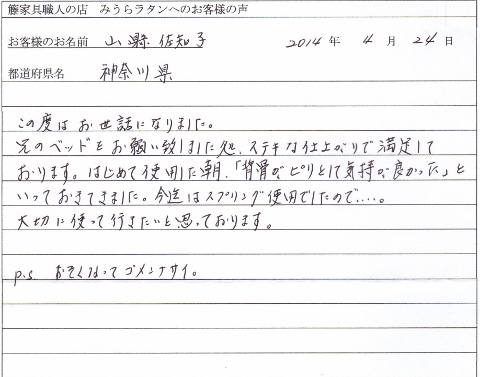 籐家具職人の店 みうらラタンへのお客様の声
お客様のお名前 山縣 佐知子 2014 年 4 月 24 日
都道府県名 神奈川県
この度はお世話になりました。
兄のベッドをお願い致しました処、ステキな仕上がりで満足して
おります。はじめて使用した朝、「背骨がピリとして気持が良かった」と
いっておきてきました。今迄はスプリング使用でしたので‥‥。
大切に使って行きたいと思っております。
p.s おそくなってゴメンナサイ。